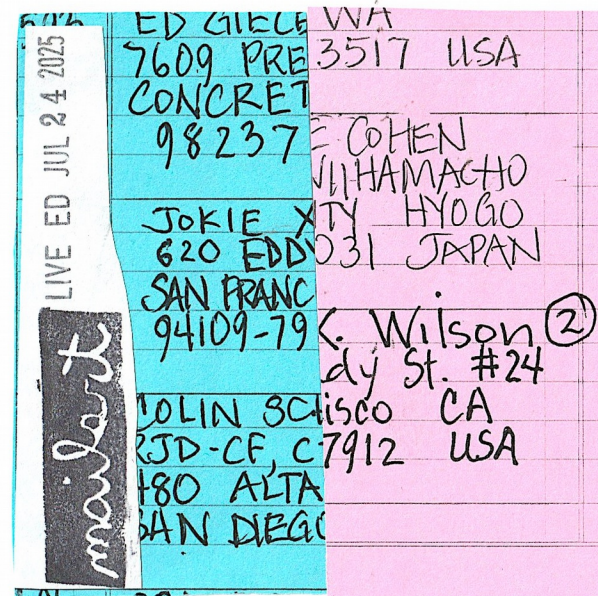 LIVE ED JUL 24 2025
mailart
ED GIECE
7609 PRE
CONCRET
98237
JOKIE X
620 EDDY
SAN FRANC
94109-79
COLIN SC
RJD-CF, C
480 ALTA
SAN DIEGO
WA
3517 USA
E COHEN
HAMACHO
TY HYOGO
031 JAPAN
K. Wilson 2
dy St. #24
isco CA
7912 USA